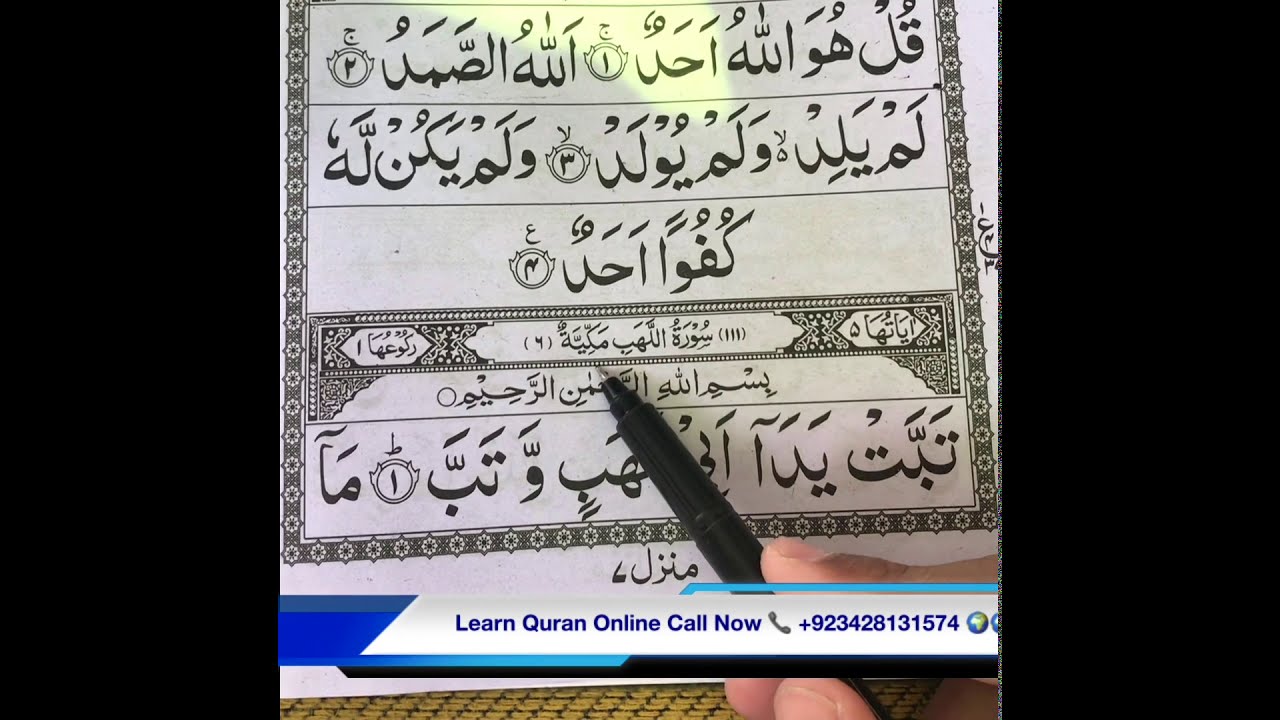 قُلْ هُوَ اللّٰهُ اَحَدٌ ۚ ١ اَللّٰهُ الصَّمَدُ ۚ ٢
لَمْ يَلِدْ ۙ٥ وَلَمْ يُوْلَدْ ۙ ٣ وَلَمْ يَكُنْ لَّهٗ
كُفُوًا اَحَدٌ ع ۴
اٰيَاتُهَا ۵ (١١١) سُوْرَةُ اللَّهَبِ مَكِّيَّةٌ (٦) رُكُوْعُهَا ١
بِسْمِ اللهِ الرَّحْمٰنِ الرَّحِيْمِ ○
تَبَّتْ يَدَآ اَبِيْ لَهَبٍ وَّ تَبَّ ؕ ١ مَآ
منزل ٧
Learn Quran Online Call Now 📞 +923428131574 🌍